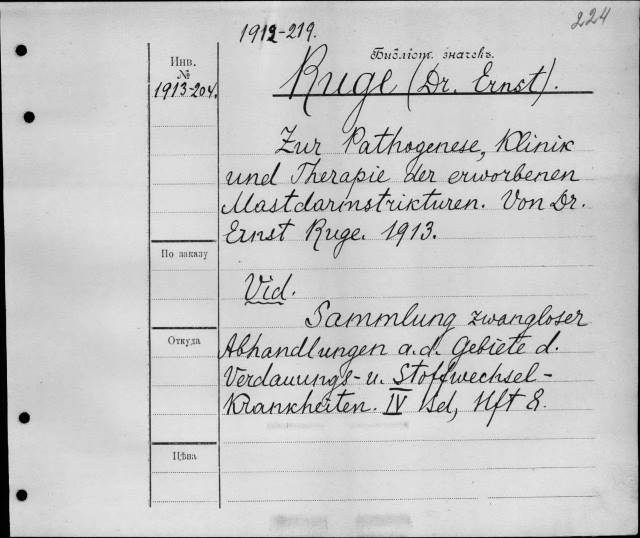 224
1912-219.
Инв.
№
1913-204.
Библіотк. значекъ.
Ruge (Dr. Ernst).
Zur Pathogenese, Klinik
und Therapie der erworbenen
Mastdarmstrikturen. Von Dr.
Ernst Ruge. 1913.
По заказу
Vid.
Sammlung zwangloser
Откуда
Abhandlungen a.d. Gebiete d.
Verdauungs- u. Stoffwechsel-
Krankheiten. IV Bd, Hft 8.
Цѣна